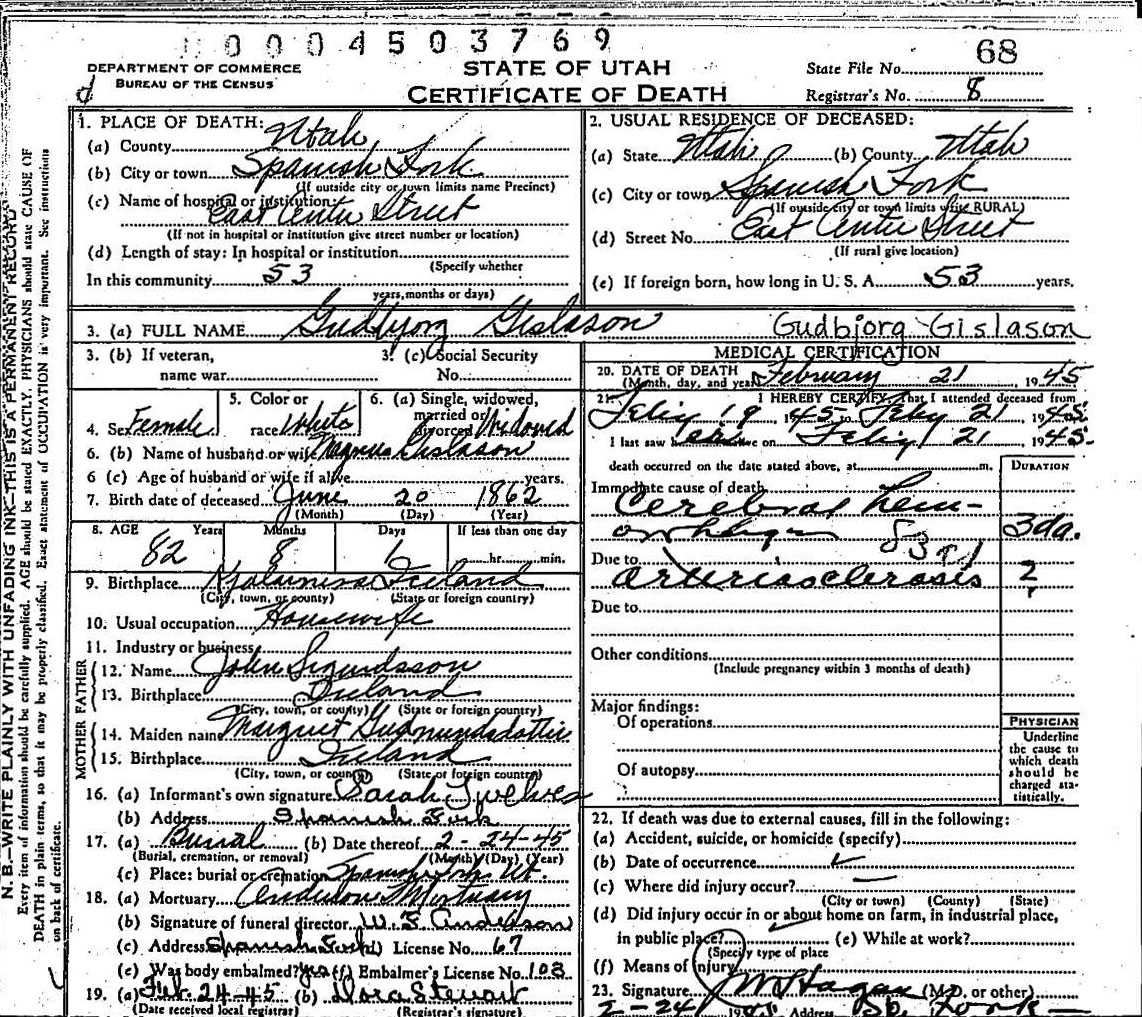 0004503769
68
DEPARTMENT OF COMMERCE
BUREAU OF THE CENSUS
STATE OF UTAH
CERTIFICATE OF DEATH
State File No.
Registrar's No. 8
d
N. B.—WRITE PLAINLY WITH UNFADING INK—THIS IS A PERMANENT RECORD
Every item of information should be carefully supplied. AGE should be stated EXACTLY. PHYSICIANS should state CAUSE OF
DEATH in plain terms, so that it may be properly classified. Exact statement of OCCUPATION is very important. See instructions
on back of certificate.
1. PLACE OF DEATH:
(a) County Utah
(b) City or town Spanish Fork
(If outside city or town limits name Precinct)
(c) Name of hospital or institution:
East Center Street
(If not in hospital or institution give street number or location)
(d) Length of stay: In hospital or institution
(Specify whether
In this community 53
years, months or days)
2. USUAL RESIDENCE OF DECEASED:
(a) State Utah (b) County Utah
(c) City or town Spanish Fork
(If outside city or town limits write RURAL)
(d) Street No. East Center Street
(If rural give location)
(e) If foreign born, how long in U. S. A. 53 years.
3. (a) FULL NAME Gudbjorg Gislason Gudbjorg Gislason
3. (b) If veteran,
name war
3. (c) Social Security
No.
4. Sex Female
5. Color or
race White
6. (a) Single, widowed,
married or
divorced Widowed
6. (b) Name of husband or wife Magnus Gislason
6 (c) Age of husband or wife if alive years.
7. Birth date of deceased June 20 1862
(Month) (Day) (Year)
8. AGE Years Months Days If less than one day
82 8 hr. min.
9. Birthplace Iceland
(City, town, or county) (State or foreign country)
10. Usual occupation Housewife
11. Industry or business
FATHER
12. Name John Sigurdsson
13. Birthplace Iceland
(City, town, or county) (State or foreign country)
MOTHER
14. Maiden name Gudmundsdottir
15. Birthplace Iceland
(City, town, or county) (State or foreign country)
16. (a) Informant's own signature Sarah Twelves
(b) Address Spanish Fork
17. (a) Burial (b) Date thereof 2-24-45
(Burial, cremation, or removal) (Month) (Day) (Year)
(c) Place: burial or cremation Spanish Fork Ut.
18. (a) Mortuary Anderson Mortuary
(b) Signature of funeral director W. F. Anderson
(c) Address Spanish Fork (d) License No. 67
(e) Was body embalmed? yes (f) Embalmer's License No. 103
19. (a) Feb. 24-45 (b) Dora Stewart
(Date received local registrar) (Registrar's signature)
MEDICAL CERTIFICATION
20. DATE OF DEATH
(Month, day, and year) February 21, 1945
21. I HEREBY CERTIFY, That I attended deceased from
Feby 19 1945 to Feby 21 1945
I last saw alive on Feby 21 1945
death occurred on the date stated above, at m.
DURATION
Immediate cause of death
Cerebral hem-
orrhage 3 da.
Due to
arteriosclerosis ?
Due to
Other conditions
(Include pregnancy within 3 months of death)
Major findings:
Of operations
Of autopsy
PHYSICIAN
Underline
the cause to
which death
should be
charged sta-
tistically.
22. If death was due to external causes, fill in the following:
(a) Accident, suicide, or homicide (specify)
(b) Date of occurrence
(c) Where did injury occur?
(City or town) (County) (State)
(d) Did injury occur in or about home on farm, in industrial place,
in public place? (e) While at work?
(Specify type of place
(f) Means of injury
23. Signature Hagan (M.D. or other)
2-24 1945 Address Sp. Fork